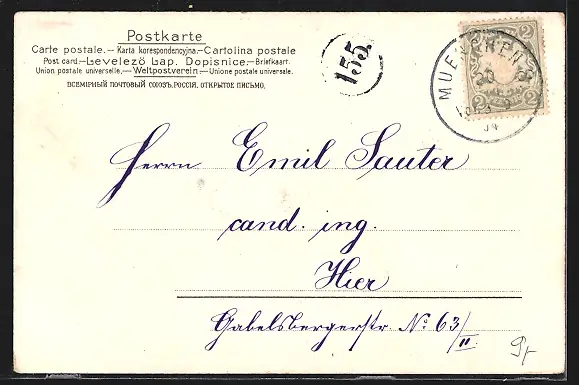 Postkarte
Carte postale.— Karta korespondencyjna.—Cartolina postale
Post card.—Levelező Lap. Dopisnice.—Briefkaart.
Union postale universelle.—Weltpostverein—Unione postale universale.
ВСЕМІРНЫЙ ПОЧТОВЫЙ СОЮЗЪ.РОССІЯ. ОТКРЫТОЕ ПИСЬМО.
155
2 2
2 2
Herrn Emil Sauter
cand. ing.
Hier
Gabelsbergerstr. No: 63/II